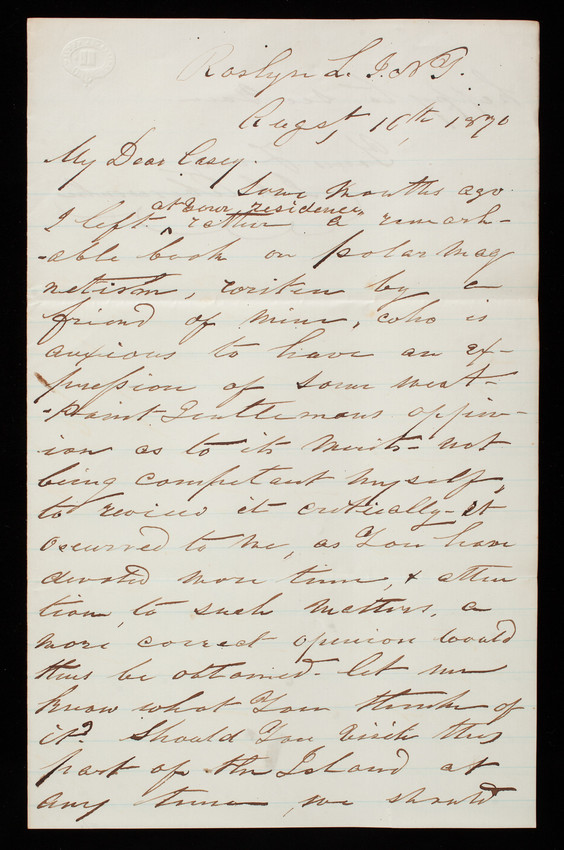 Roslyn L. I. N Y.
Augst, 16th 1870
My Dear Casey.
Some months ago
I left at your residence, rather a remark-
-able book on polar mag
netism, writen by a
friend of mine, who is
anxious to have an ex-
pression of some west-
-Point Gentlemans oppin-
ion as to its merits - not
being competant myself,
to review it critically - it
occurred to me, as You have
devoted more time, & atten
tion, to such matters, a
more correct opinion would
thus be obtained - let me
know what You think of
it? Should You visit this
part of the Island at
any time, we should